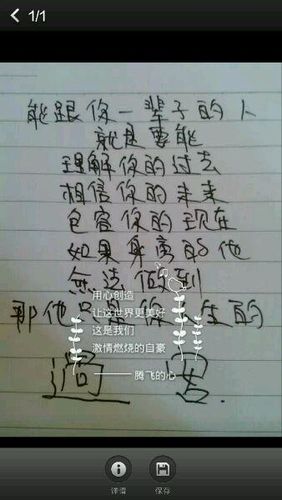 1/1
能跟你一辈子的人
就是要能
理解你的过去
相信你的未来
包容你的现在
如果身旁的他
无法做到
那他只是你人生的
過客
用心创造
让这世界更美好
这是我们
激情燃烧的自豪
—— 腾飞的心 ——
详情 保存